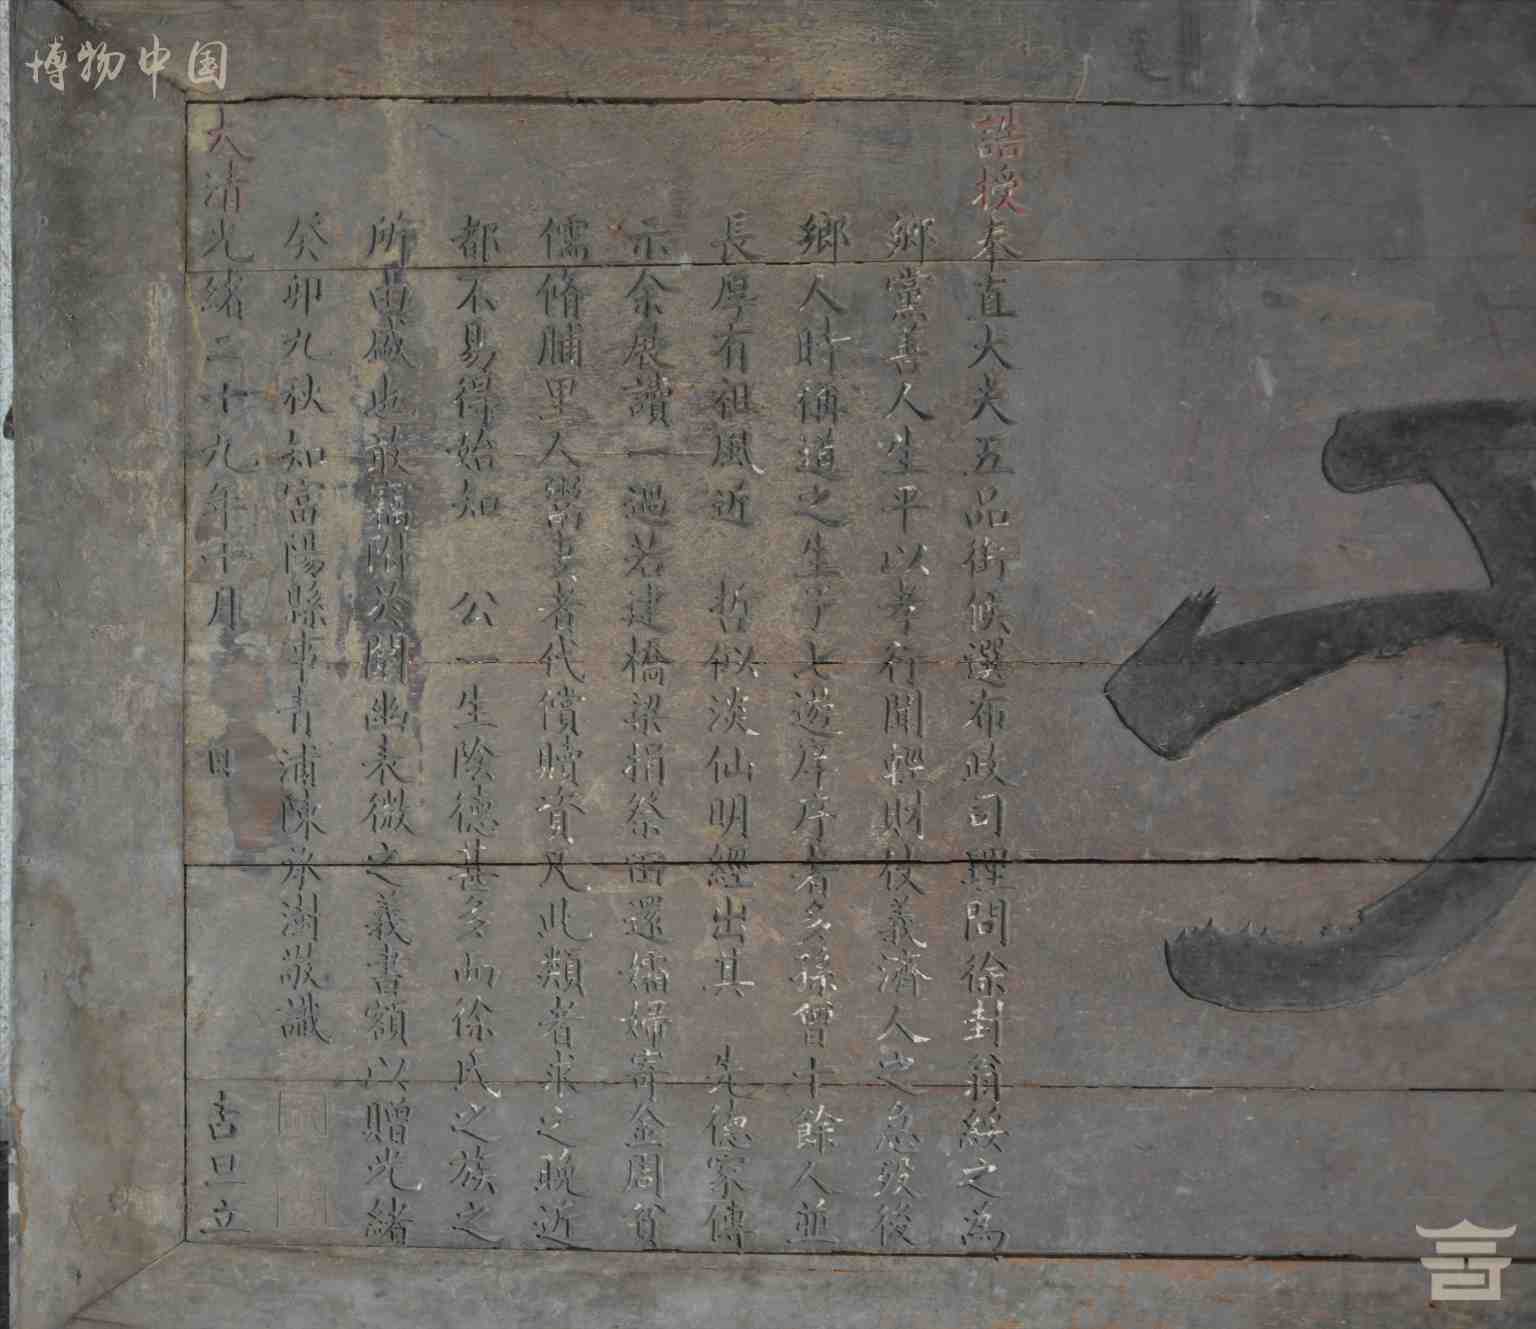 博物中国
誥授奉直大夫五品銜候選布政司理問徐封翁綏之為
鄉黨善人生平以孝行聞輕財仗義濟人之急歿後
鄉人時稱道之生子七遊庠序者多孫曾十餘人並
長厚有祖風近 哲似淡仙明經出其 先德家傳
示余展讀一過若建橋梁捐祭田還孀婦寄金周貧
儒脩脯里人鬻妻者代償贖資凡此類者求之晚近
都不易得始知 公一生陰德甚多而徐氏之族之
所由盛也敢竊附於闡幽表微之義書額以贈光緒
癸卯九秋知富陽縣事青浦陳承澍敬識
大清光緒二十九年十月 日 吉旦立